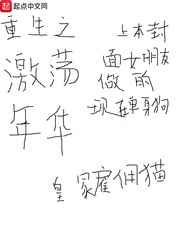 起点中文网
重生之
激荡
年华
上本封
面女朋友
做的
现是单身狗
皇冢雇佣猫